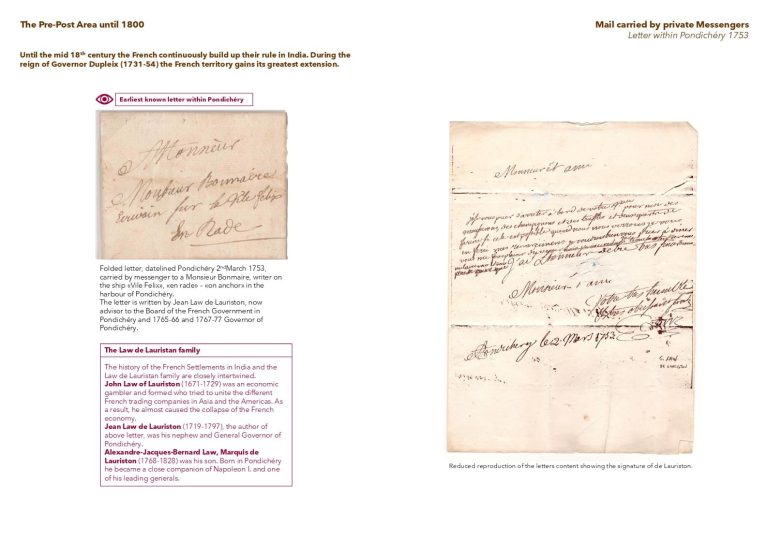 The Pre-Post Area until 1800
Mail carried by private Messengers
Letter within Pondichéry 1753
Until the mid 18th century the French continuously build up their rule in India. During the
reign of Governor Dupleix (1731-54) the French territory gains its greatest extension.
Earliest known letter within Pondichéry
A Monsieur
Monsieur Bonmaire
Ecrivain sur le Vile Felix
En Rade
Folded letter, datelined Pondichéry 2ndMarch 1753,
carried by messenger to a Monsieur Bonmaire, writer on
the ship «Vile Felix», «en rade» – «on anchor» in the
harbour of Pondichéry.
The letter is written by Jean Law de Lauristan, now
advisor to the Board of the French Government in
Pondichéry and 1765-66 and 1767-77 Governor of
Pondichéry.
The Law de Lauristan family
The history of the French Settlements in India and the
Law de Lauristan family are closely intertwined.
John Law of Lauriston (1671-1729) was an economic
gambler and formed who tried to unite the different
French trading companies in Asia and the Americas. As
a result, he almost caused the collapse of the French
economy.
Jean Law de Lauriston (1719-1797), the author of
above letter, was his nephew and General Governor of
Pondichéry.
Alexandre-Jacques-Bernard Law, Marquis de
Lauriston (1768-1828) was his son. Born in Pondichéry
he became a close companion of Napoleon I. and one
of his leading generals.
Monsieur et ami
Monsieur & ami
Votre tres humble
Pondichery le 2 Mars 1753
Reduced reproduction of the letters content showing the signature of de Lauriston.